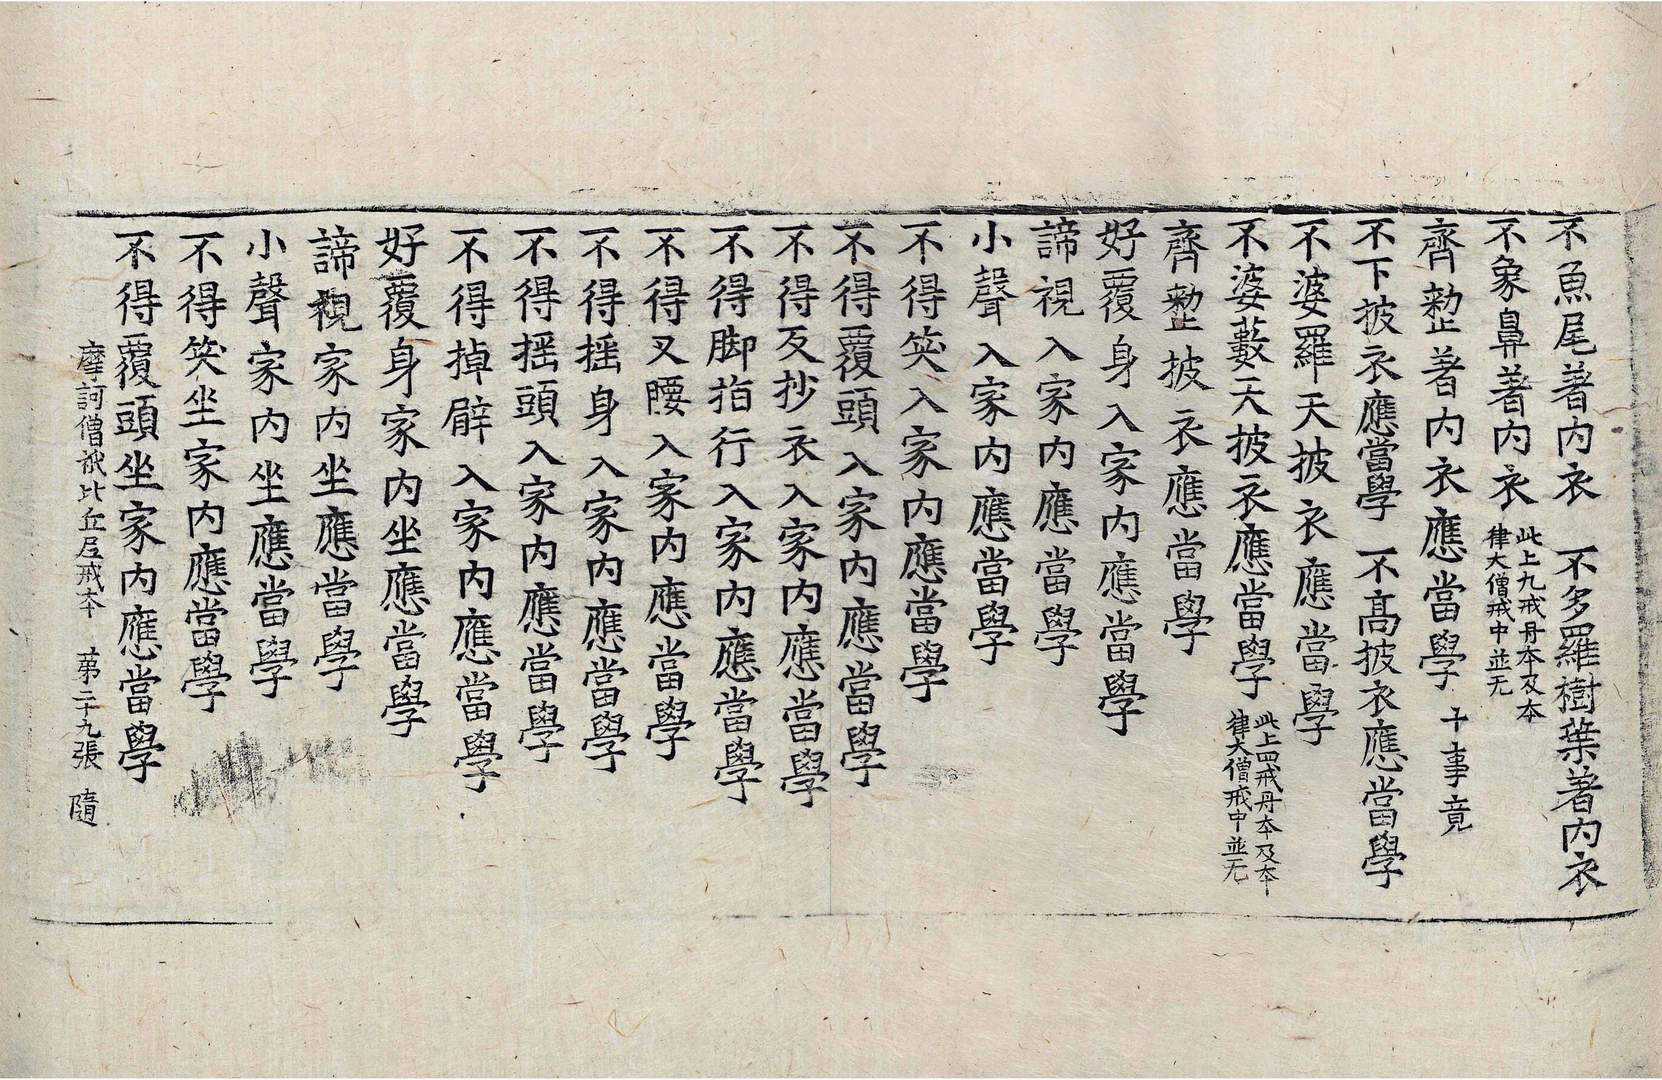 不魚尾著内衣　不多羅樹葉著内衣
不象鼻著内衣 此上九戒丹夲及夲律大僧戒中並无
齊整著内衣應當學 十事竟
不下披衣應當學　不髙披衣應當學
不婆羅天披衣應當學
不婆藪天披衣應當學 此上四戒丹夲及夲律大僧戒中並无
齊整披衣應當學
好覆身入家内應當學
諦視入家内應當學
小聲入家内應當學
不得笑入家内應當學
不得覆頭入家内應當學
不得反抄衣入家内應當學
不得脚指行入家内應當學
不得叉腰入家内應當學
不得摇身入家内應當學
不得摇頭入家内應當學
不得掉臂入家内應當學
好覆身家内坐應當學
諦視家内坐應當學
小聲家内坐應當學
不得笑坐家内應當學
不得覆頭坐家内應當學
摩訶僧祇比丘尼戒夲　苐二十九張　隨